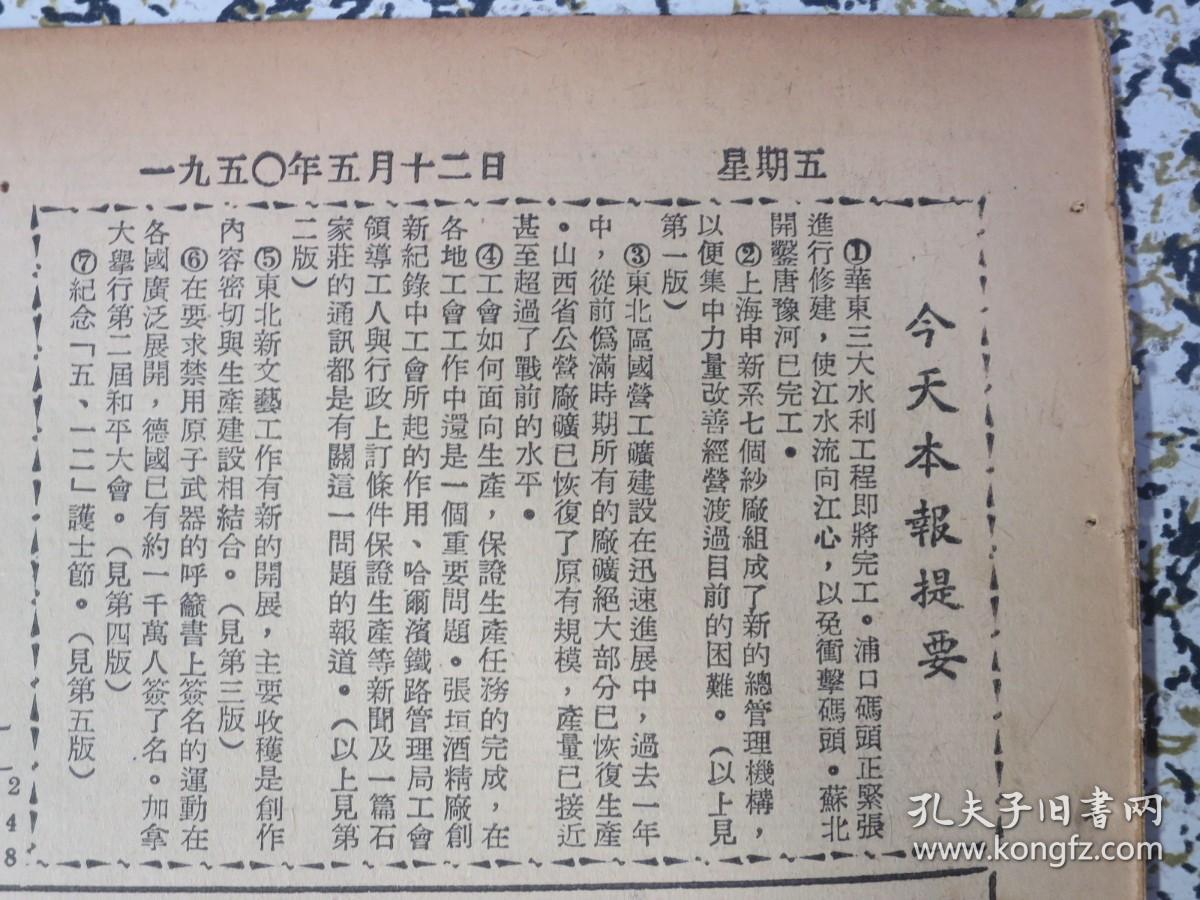 一九五〇年五月十二日
星期五
今天本報提要
①華東三大水利工程即將完工。浦口碼頭正緊張
進行修建，使江水流向江心，以免衝擊碼頭。蘇北
開鑿唐豫河已完工。
②上海申新系七個紗廠組成了新的總管理機構，
以便集中力量改善經營渡過目前的困難。（以上見
第一版）
③東北區國營工礦建設在迅速進展中，過去一年
中，從前僞滿時期所有的廠礦絕大部分已恢復生產
。山西省公營廠礦已恢復了原有規模，產量已接近
甚至超過了戰前的水平。
④工會如何面向生產，保證生產任務的完成，在
各地工會工作中還是一個重要問題。張垣酒精廠創
新紀錄中工會所起的作用、哈爾濱鐵路管理局工會
領導工人與行政上訂條件保證生產等新聞及一篇石
家莊的通訊都是有關這一問題的報道。（以上見第
二版）
⑤東北新文藝工作有新的開展，主要收穫是創作
內容密切與生產建設相結合。（見第三版）
⑥在要求禁用原子武器的呼籲書上簽名的運動在
各國廣泛展開，德國已有約一千萬人簽了名。加拿
大舉行第二屆和平大會。（見第四版）
⑦紀念「五、一二」護士節。（見第五版）
248
孔夫子旧书网
www.kongfz.com